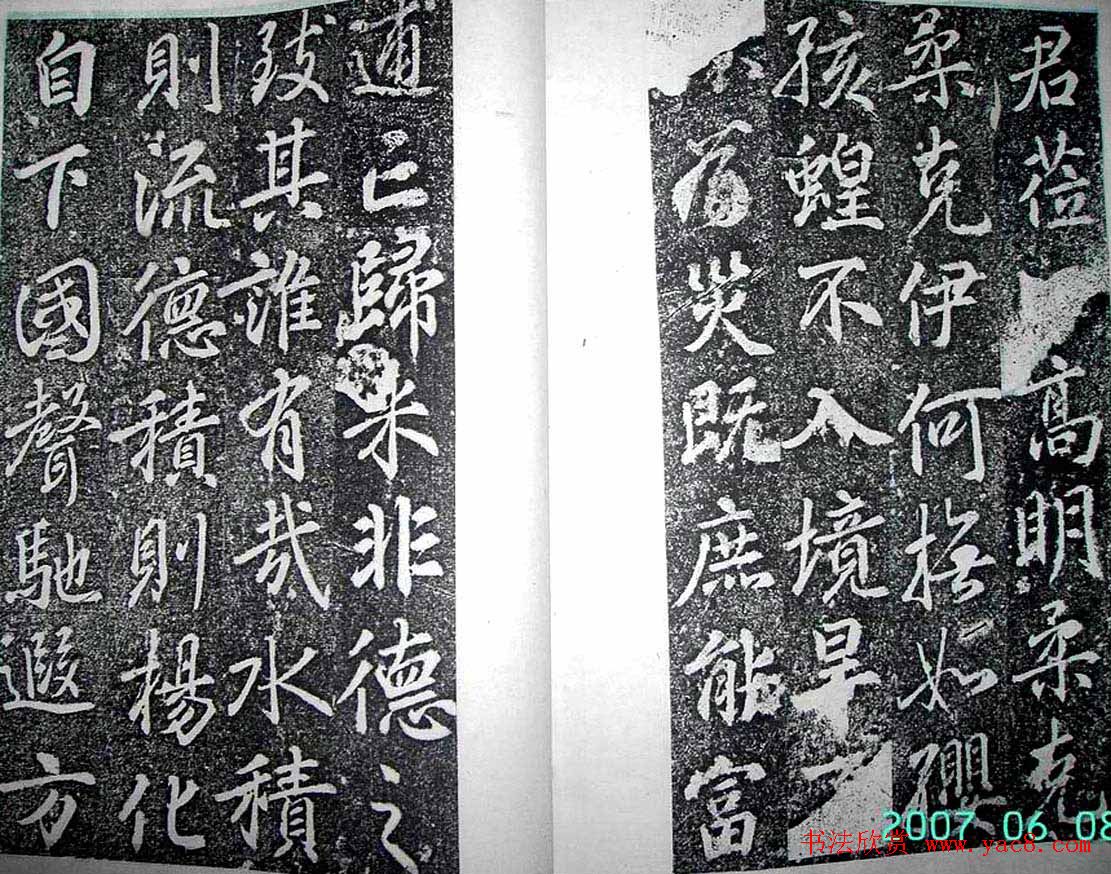 君莅高明柔克
柔克伊何撫如孾
孩蝗不入境旱
不為災既庶能富
逋亡歸来非德之
致其誰有哉水積
則流德積則楊化
自下國聲馳遐方
2007.06.08
书法欣赏 www.yac8.com